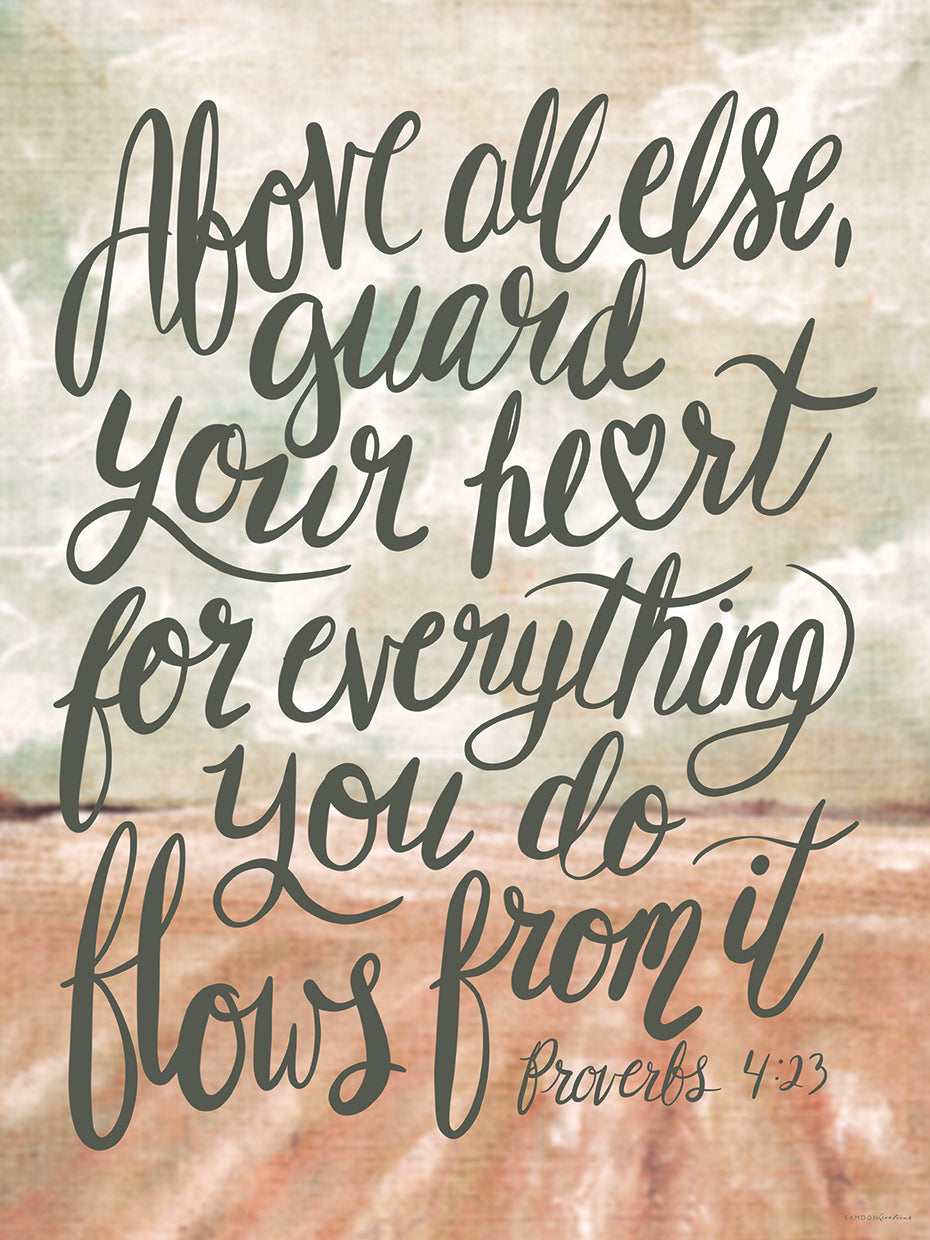 Above all else,
guard
your heart
for everything
you do
flows from it
Proverbs 4:23
KAMDON Creations